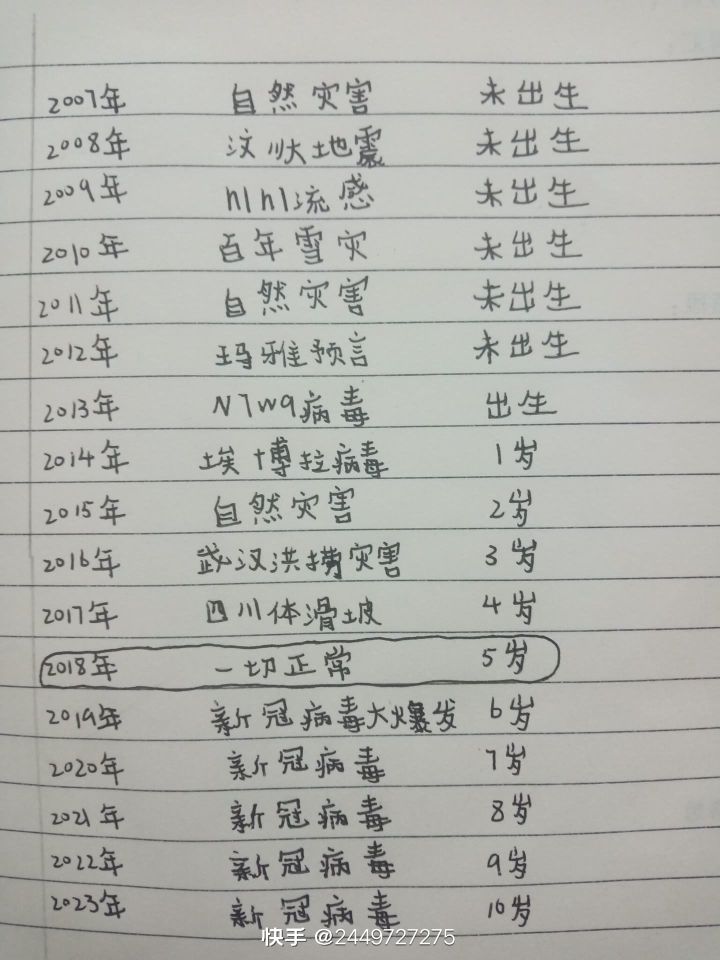 2007年 自然灾害 未出生
2008年 汶川大地震 未出生
2009年 h1n1流感 未出生
2010年 百年雪灾 未出生
2011年 自然灾害 未出生
2012年 玛雅预言 未出生
2013年 N7W9病毒 出生
2014年 埃博拉病毒 1岁
2015年 自然灾害 2岁
2016年 武汉洪捞灾害 3岁
2017年 四川体滑坡 4岁
2018年 一切正常 5岁
2019年 新冠病毒大爆发 6岁
2020年 新冠病毒 7岁
2021年 新冠病毒 8岁
2022年 新冠病毒 9岁
2023年 新冠病毒 10岁
快手 @2449727275